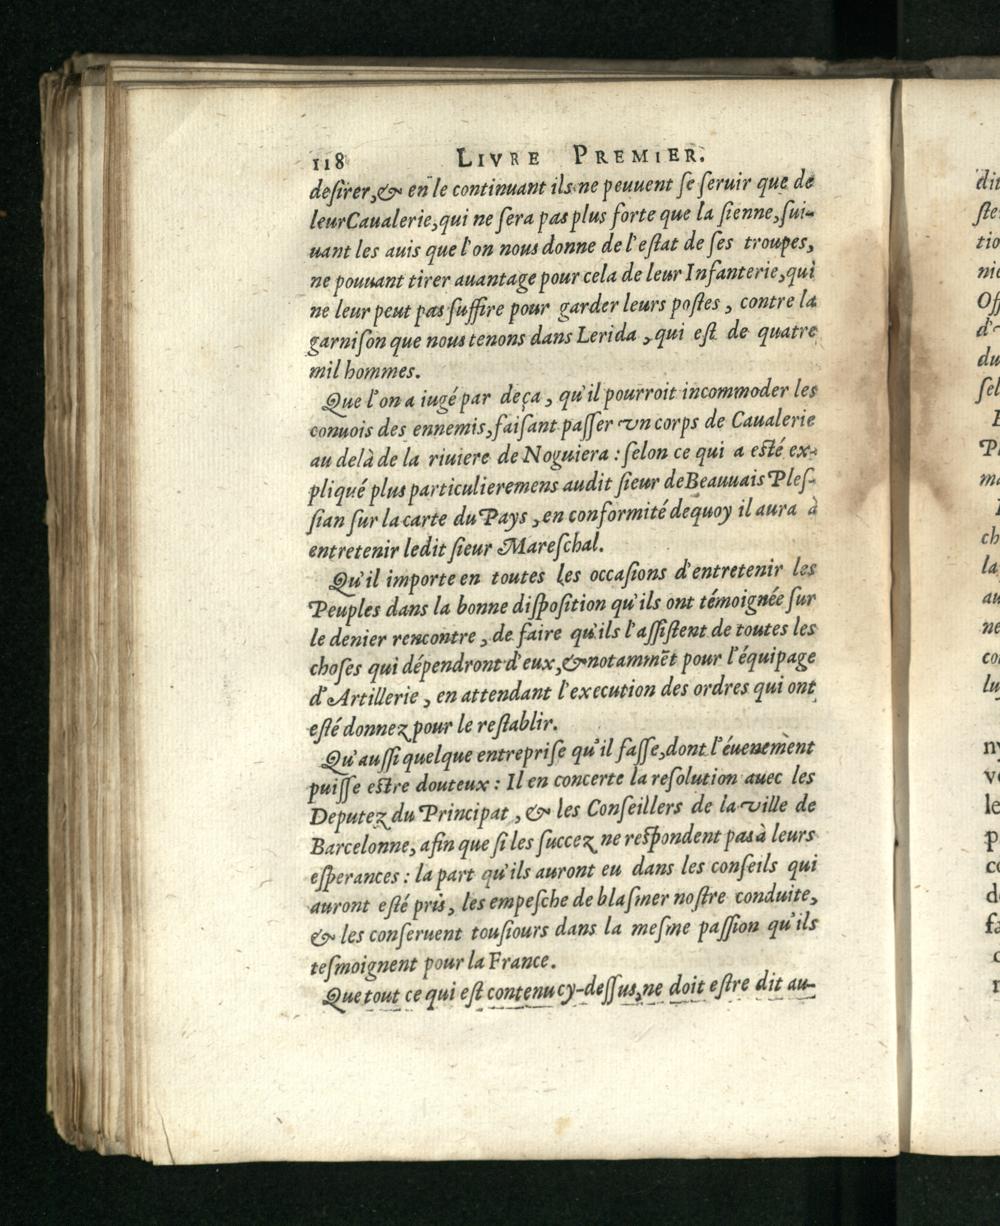 118 LIVRE PREMIER.
desirer, & en le continuant ils ne peuuent se seruir que de
leur Caualerie, qui ne sera pas plus forte que la sienne, sui-
uant les auis que l'on nous donne de l'estat de ses troupes,
ne pouuant tirer auantage pour cela de leur Infanterie, qui
ne leur peut pas suffire pour garder leurs postes, contre la
garnison que nous tenons dans Lerida, qui est de quatre
mil hommes.
Que l'on a iugé par deça, qu'il pourroit incommoder les
conuois des ennemis, faisant passer vn corps de Caualerie
au delà de la riuiere de Noguiera : selon ce qui a esté ex-
pliqué plus particulieremens audit sieur de Beauuais Ples-
sian sur la carte du Pays, en conformité dequoy il aura à
entretenir ledit sieur Mareschal.
Qu'il importe en toutes les occasions d'entretenir les
Peuples dans la bonne disposition qu'ils ont témoignée sur
le denier rencontre, de faire qu'ils l'assistent de toutes les
choses qui dépendront d'eux, & notammēt pour l'équipage
d'Artillerie, en attendant l'execution des ordres qui ont
esté donnez pour le restablir.
Qu'aussi quelque entreprise qu'il fasse, dont l'éuenement
puisse estre douteux : Il en concerte la resolution auec les
Deputez du Principat, & les Conseillers de la ville de
Barcelonne, afin que si les succez ne respondent pas à leurs
esperances : la part qu'ils auront eu dans les conseils qui
auront esté pris, les empesche de blasmer nostre conduite,
& les conseruent tousiours dans la mesme passion qu'ils
tesmoignent pour la France.
Que tout ce qui est contenu cy-dessus, ne doit estre dit au-